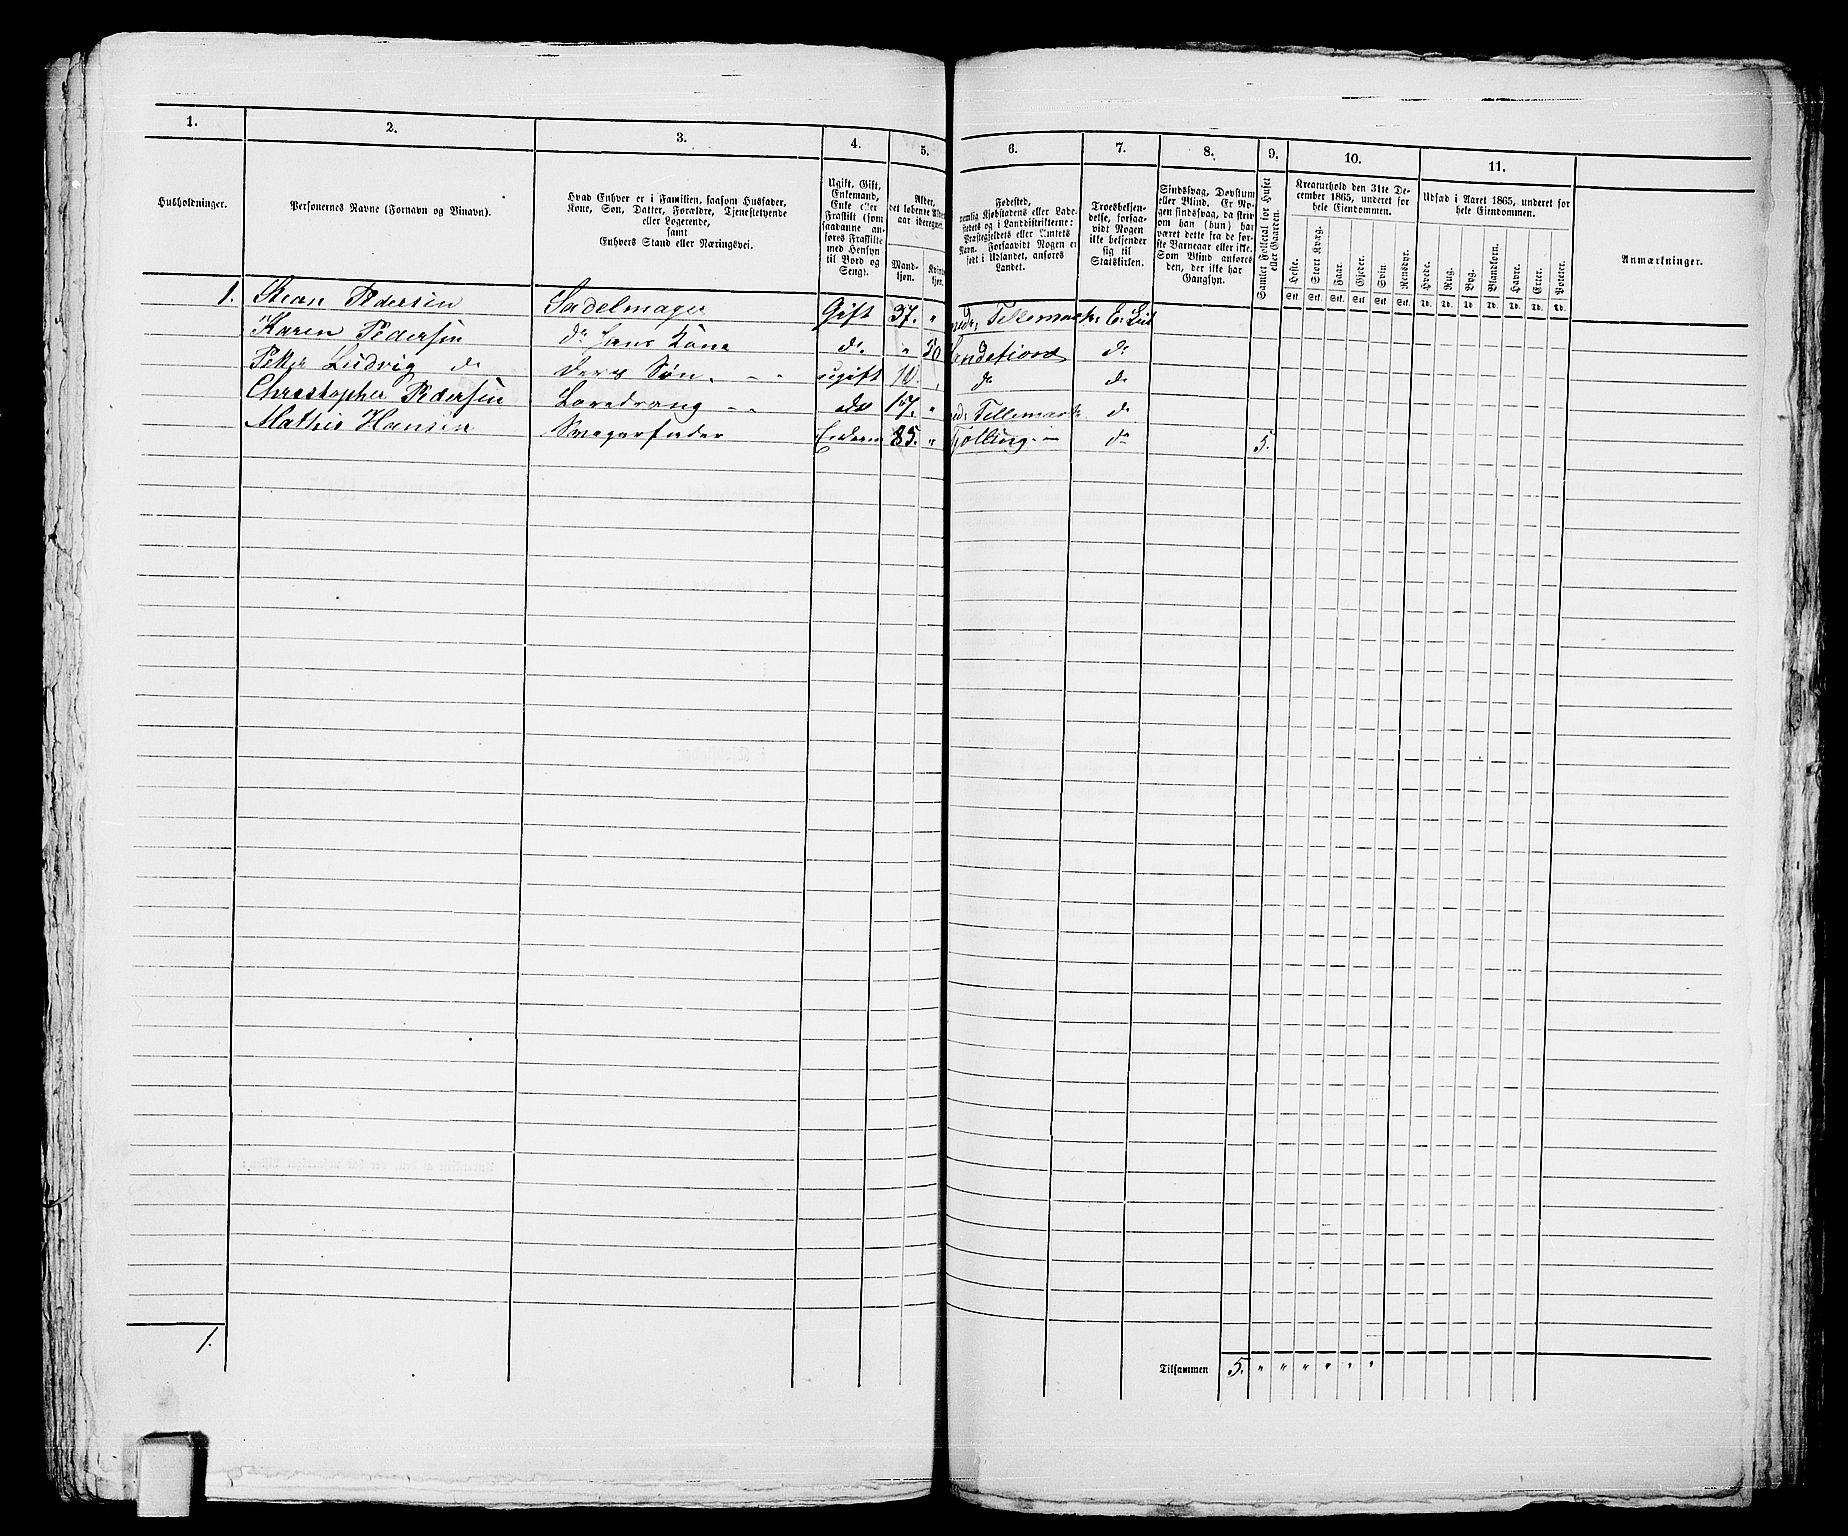 1. 2. 3. 4. 5. 6. 7. 8. 9. 10. 11.
Husholdninger.
Personernes Navne (Fornavn og Binavn).
Hvad Enhver er i Familien, saasom Husfader,
Kone, Søn, Datter, Forældre, Tjenestetyende
eller Logerende,
samt
Enhvers Stand eller Næringsvei.
Ugift, Gift,
Enkemand,
Enke eller
Fraskilt (som
saadanne an-
føres Fraskilte
med Hensyn
til Bord og
Seng).
Alder,
det løbende Alders-
aar iberegnet.
Mand-
kjøn.
Kvinde-
kjøn.
Fødested,
nemlig Kjøbstadens eller Lade-
stedets og i Landdistrikterne:
Præstegjeldets eller Amtets
Navn. Forsaavidt Nogen er
født i Udlandet, anføres
Landet.
Troesbekjen-
delse, forsaa-
vidt Nogen
ikke bekjender
sig til
Statskirken.
Sindssvag, Døvstum
eller Blind. Er No-
gen sindssvag, da skriv
om han (hun) har
været dette fra de før-
ste Barneaar eller ikke.
Som Blind anføres
den, der ikke har
Gangsyn.
Samlet Folketal for Huset
eller Gaarden.
Kreaturhold den 31te De-
cember 1865, underet for
hele Eiendommen.
Heste. Stort Kvæg. Faar. Gjeder. Svin. Rensdyr.
Stk. Stk. Stk. Stk. Stk. Stk.
Udsæd i Aaret 1865, underet for
hele Eiendommen.
Hvede. Rug. Byg. Blandkorn. Havre. Erter. Poteter.
Td. Td. Td. Td. Td. Td. Td.
Anmærkninger.
1. Pedersen Sadelmager Gift 37. " Tellemarken
Karen Pedersen do hans Kone do. " 50 Sandefiord do
Peter Ludvig do deres Søn. ugift 10. " do do
Christopher Pedersen Læredreng 17. " Tellemark do
Mathis Hansen Svegerfader Enkem 85. " Tjølling do 5.
1. Tilsammen 5. " " " " " "